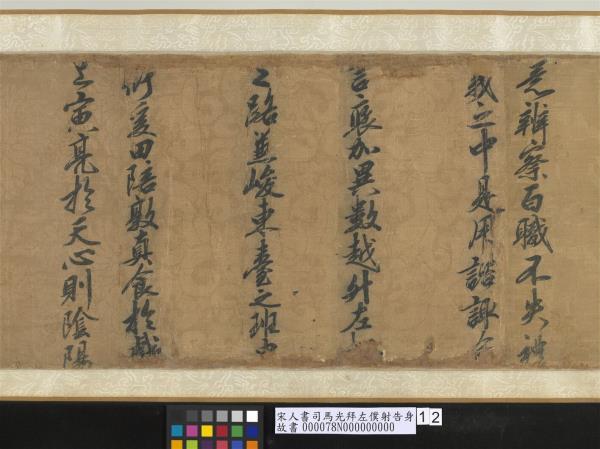 悉辨察百職不失禮
我之中是用諮諏僉
言褒加異數越升左
之路兼峻東臺之班
衍爰田陪敦真食於戲
寅亮於天心則陰陽
宋人書司馬光拜左僕射告身 12
故書 000078N000000000